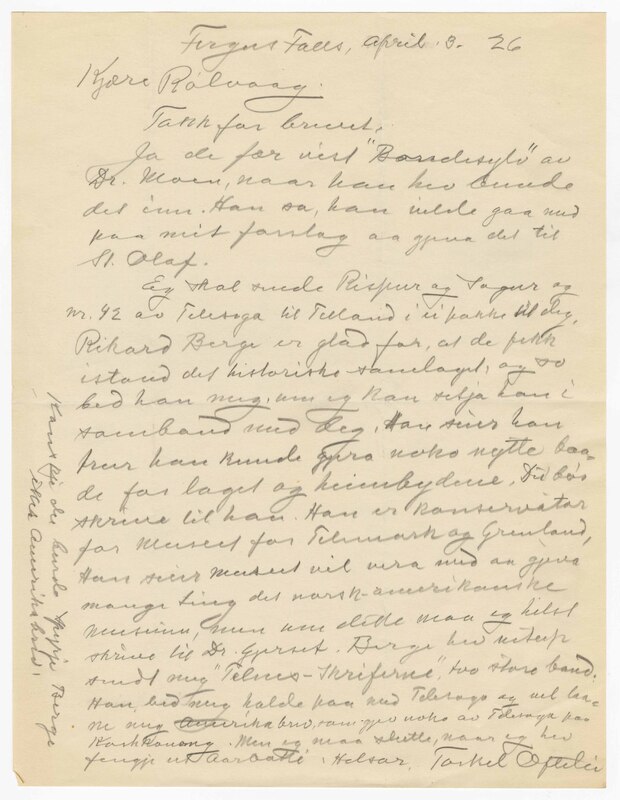 Fergus Falls, April 3. 26
Kjære Rölvaag.
Takk for brevet.
Ja de fær vist "Bondesylv" av
Dr. Moen, naar han hev bunde
det inn. Han sa, han vilde gaa med
paa mit forslag aa gjeva det til
St. Olaf.
Eg skal sende Rispur og Sogur og
nr. 42 av Telesoga til Telland i ei pakke til deg.
Rikard Berge er glad for, at de fekk
istand det historiske samlaget, og so
bed han meg, um eg kan setja han i
samband med deg. Han sier han
trur han kunde gjera noko nytte baa-
de for laget og heimbydene. Du bör
skrive til han. Han er konservator
for Museet for Telemark og Grenland,
Han sier museet vil vera med aa gjeva
mange ting det norsk-amerikanske
museum, men um dette maa eg helst
skrive til Dr. Gjerset. Berge hev netup
sendt meg "Telnes-Skrifterne", two store band.
Han bed meg halde paa med Telesoga og vil laa-
ne meg Amerikabrev, som gjev noko av Telesoga paa
Koshkonong. Men eg maa slutte, naar eg hev
fengje ut Aarbotti. Helsar, Torkel Oftelie
Kanskje du kunde spyrja Berge
etter Amerikabrev.